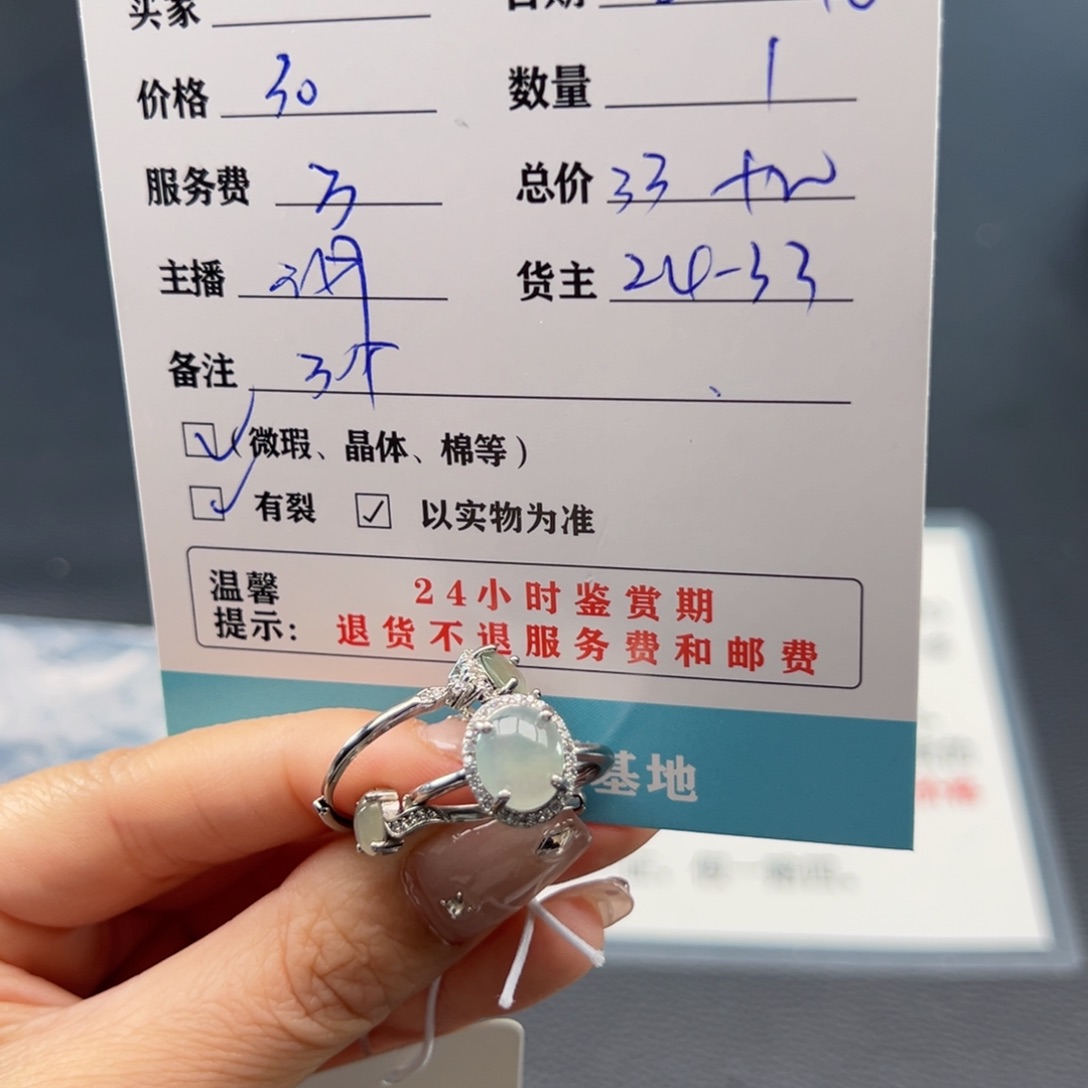 买家 日期
价格 30 数量 1
服务费 3 总价 33
主播 货主 24-33
备注 3件
（微瑕、晶体、棉等）
有裂 以实物为准
温馨 24小时鉴赏期
提示： 退货不退服务费和邮费
基地